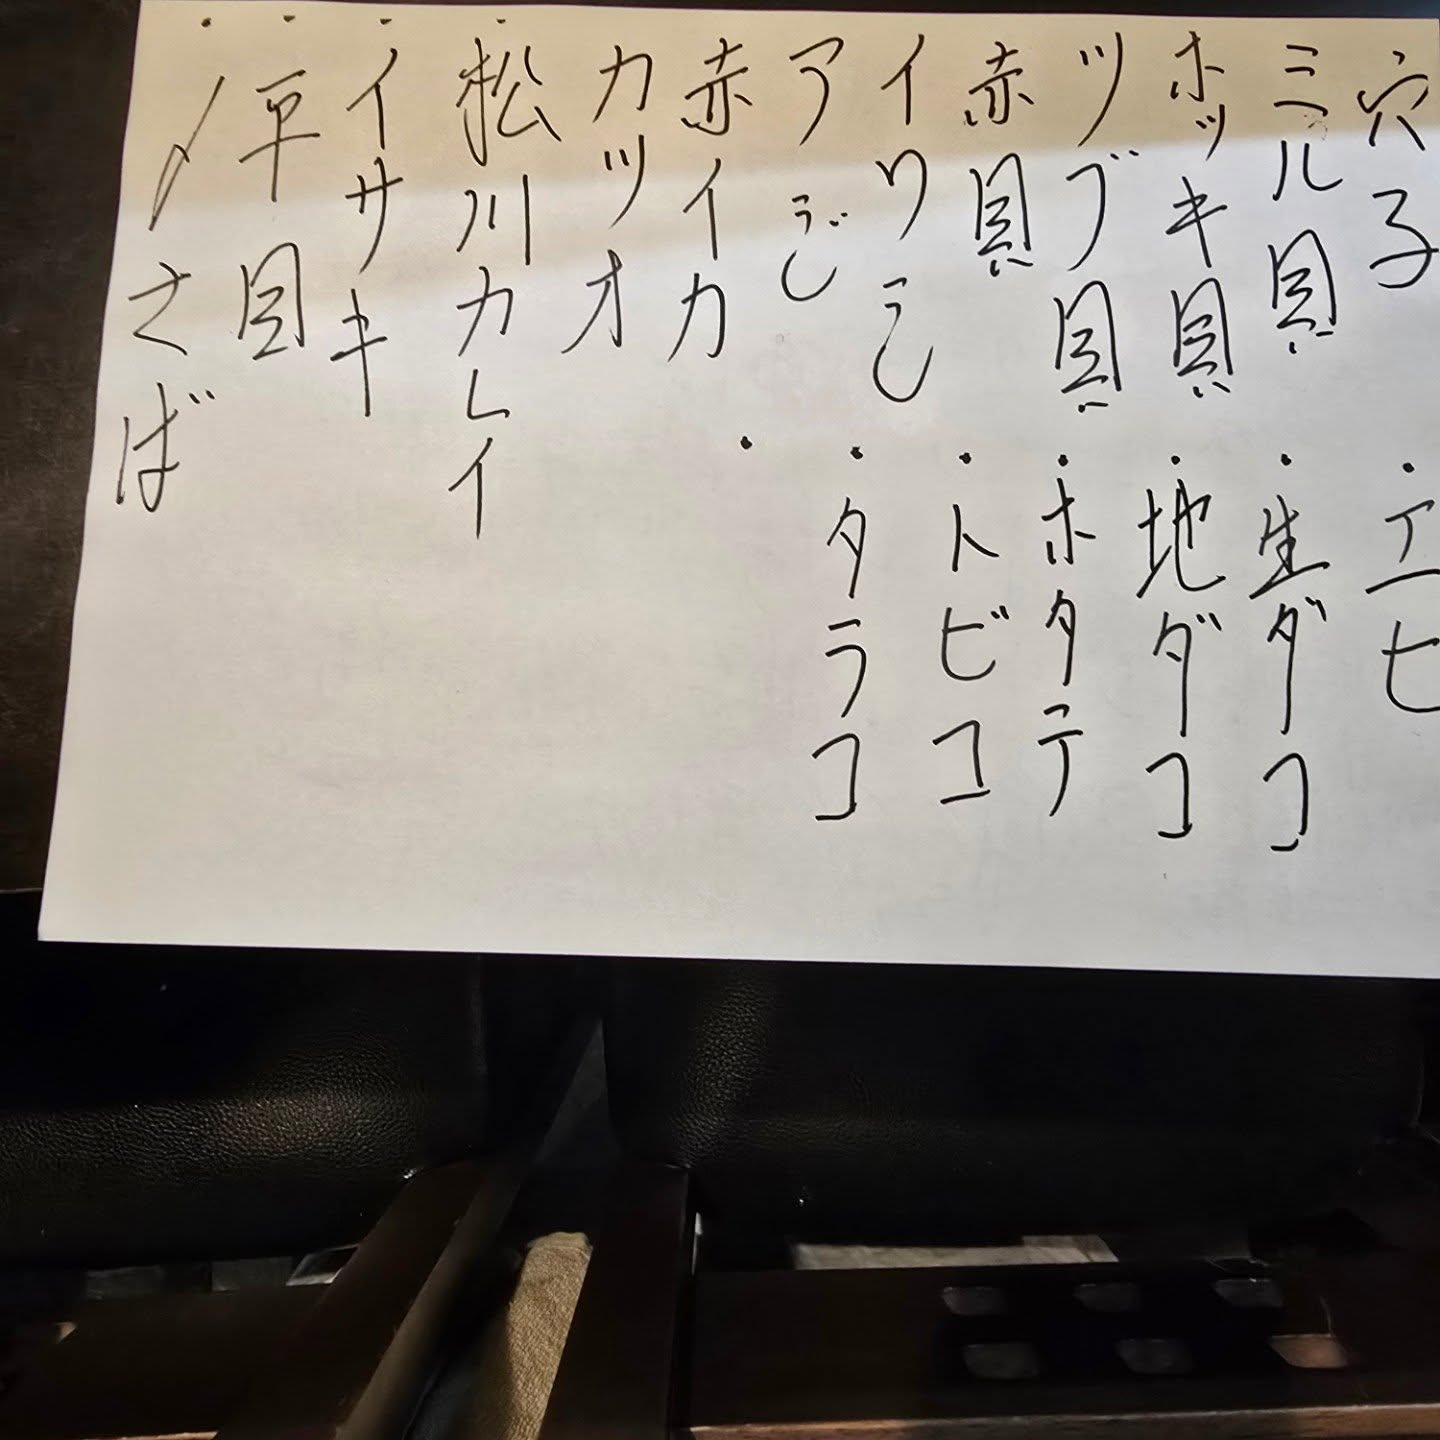 穴子
ミル貝
ホッキ貝
ツブ貝
赤貝
イワシ
アジ
赤イカ
カツオ
松川カレイ
・イサキ
・平目
・〆さば
・エビ
・生ダコ
・地ダコ
・ホタテ
・トビコ
・タラコ
・